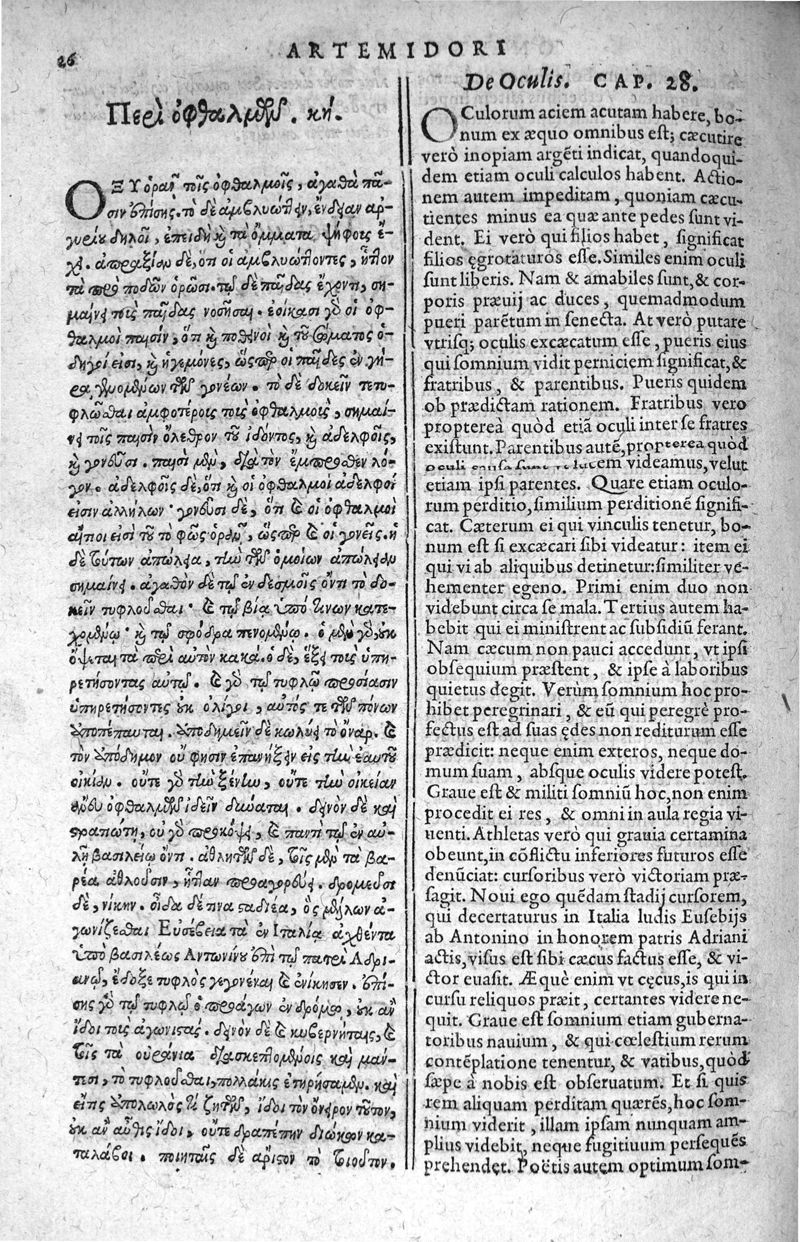 26
ARTEMIDORI
Περὶ ὀφθαλμῶν. κη΄.
ΟΞΥ ὁρᾶν τοῖς ὀφθαλμοῖς, ἀγαθὸν πᾶ-
σιν ἐπίσης. τὸ δὲ ἀμβλυώττειν, ἔνδειαν ἀρ-
γυρίου δηλοῖ, ἐπειδὴ καὶ τὰ ὄμματα ψήφοις ἔ-
χει. ἀπραξίαν δὲ, ὅτι οἱ ἀμβλυώττοντες, ἧττον
τὰ πρὸ ποδῶν ὁρῶσι. τῷ δὲ παῖδας ἔχοντι, ση-
μαίνει τοὺς παῖδας νοσῆσαι. ἐοίκασι γὰρ οἱ ὀφ-
θαλμοὶ παισὶν, ὅτι καὶ ποθεινοὶ καὶ τοῦ σώματος ὁ-
δηγοί εἰσι, καὶ ἡγεμόνες, ὥσπερ οἱ παῖδες ἐν γή-
ρᾳ γενομένων τῶν γονέων. τὸ δὲ δοκεῖν τετυ-
φλῶσθαι ἀμφοτέροις τοῖς ὀφθαλμοῖς, σημαί-
νει τοῖς παισὶν ὄλεθρον τοῦ ἰδόντος, καὶ ἀδελφοῖς,
καὶ γονεῦσι. παισὶ μὲν, διὰ τὸν ἔμπροσθεν λό-
γον. ἀδελφοῖς δὲ, ὅτι καὶ οἱ ὀφθαλμοὶ ἀδελφοί
εἰσιν ἀλλήλων· γονεῦσι δὲ, ὅτι καὶ οἱ ὀφθαλμοὶ
αἴτιοί εἰσι τοῦ τὸ φῶς ὁρᾶν, ὥσπερ καὶ οἱ γονεῖς. ἡ
δὲ τούτων ἀπώλεια, τὴν τῶν ὁμοίων ἀπώλειαν
σημαίνει. ἀγαθὸν δὲ τῷ ἐν δεσμοῖς ὄντι τὸ δο-
κεῖν τυφλοῦσθαι· καὶ τῷ βίᾳ ὑπό τινων κατε-
χομένῳ· καὶ τῷ σφόδρα πενομένῳ. ὁ μὲν γὰρ οὐκ
ὄψεται τὰ περὶ αὐτὸν κακά. ὁ δὲ, ἕξει τοὺς ὑπη-
ρετήσοντας αὐτῷ. καὶ γὰρ τῷ τυφλῷ προσίασιν
ὑπηρετήσοντες οὐκ ὀλίγοι, αὐτός τε τῶν πόνων
ἀποπέπαυται. ἀποδημεῖν δὲ κωλύει τὸ ὄναρ. καὶ
τὸν ἀπόδημον οὔ φησιν ἐπανήξειν εἰς τὴν ἑαυτοῦ
οἰκίαν. οὔτε γὰρ τὴν ξένην, οὔτε τὴν οἰκείαν
ἄνευ ὀφθαλμῶν ἰδεῖν δύναται. δεινὸν δὲ καὶ
στρατιώτῃ, οὐ γὰρ προκόψει, καὶ παντὶ τῷ ἐν αὐ-
λῇ βασιλείῳ ὄντι. ἀθληταῖς δὲ, τοῖς μὲν τὰ βα-
ρέα ἀθλοῦσιν, ἧτταν προαγορεύει. δρομεῦσι
δὲ, νίκην. οἶδα δέ τινα σταδιέα, ὃς μέλλων ἀ-
γωνίζεσθαι Εὐσέβεια τὰ ἐν Ἰταλίᾳ ἀχθέντα
ὑπὸ βασιλέως Ἀντωνίνου ἐπὶ τῷ πατρὶ Ἀδρι-
ανῷ, ἔδοξε τυφλὸς γεγονέναι καὶ ἐνίκησεν. ἐπί-
σης γὰρ τῷ τυφλῷ ὁ προάγων ἐν δρόμῳ, οὐκ ἂν
ἴδοι τοὺς ἀγωνιστάς. δεινὸν δὲ καὶ κυβερνήταις, καὶ
τοῖς τὰ οὐράνια διασκεπτομένοις καὶ μάν-
τεσι, τὸ τυφλοῦσθαι, πολλάκις ἐτηρήσαμεν. καὶ
εἴ τις ἀπολωλός τι ζητῶν, ἴδοι τὸν ὄνειρον τοῦτον,
οὐκ ἂν αὖθις ἴδοι, οὔτε δραπέτην διώκων κα-
ταλάβοι. ποιηταῖς δὲ ἄριστον τὸ τοιοῦτον.
De Oculis. CAP. 28.
OCulorum aciem acutam habere, bo-
num ex æquo omnibus est; cæcutire
verò inopiam argēti indicat, quandoqui-
dem etiam oculi calculos habent. Actio-
nem autem impeditam, quoniam cæcu-
tientes minus ea quæ ante pedes sunt vi-
dent. Ei verò qui filios habet, significat
filios ęgrotaturos esse. Similes enim oculi
sunt liberis. Nam & amabiles sunt, & cor-
poris præuij ac duces, quemadmodum
pueri parētum in senecta. At verò putare
vtrisq; oculis excæcatum esse, pueris eius
qui somnium vidit perniciem significat, &
fratribus, & parentibus. Pueris quidem
ob prædictam rationem. Fratribus vero
propterea quòd etiā oculi inter se fratres
existunt. Parentibus autē, propterea quòd
oculi causa sunt vt lucem videamus, velut
etiam ipsi parentes. Quare etiam oculo-
rum perditio, similium perditionē signifi-
cat. Cæterum ei qui vinculis tenetur, bo-
num est si excæcari sibi videatur: item ei
qui vi ab aliquibus detinetur: similiter ve-
hementer egeno. Primi enim duo non
videbunt circa se mala. Tertius autem ha-
bebit qui ei ministrent ac subsidiū ferant.
Nam cæcum non pauci accedunt, vt ipsi
obsequium præstent, & ipse à laboribus
quietus degit. Verùm somnium hoc pro-
hibet peregrinari, & eū qui peregrè pro-
fectus est ad suas ędes non rediturum esse
prædicit: neque enim exteros, neque do-
mum suam, absque oculis videre potest.
Graue est & militi somniū hoc, non enim
procedit ei res, & omni in aula regia vi-
uenti. Athletas verò qui grauia certamina
obeunt, in cōflictu inferiores futuros esse
denūciat: cursoribus verò victoriam præ-
sagit. Noui ego quēdam stadij cursorem,
qui decertaturus in Italia ludis Eusebijs
ab Antonino in honorem patris Adriani
actis, visus est sibi cæcus factus esse, & vi-
ctor euasit. Æquè enim vt cęcus, is qui in
cursu reliquos præit, certantes videre ne-
quit. Graue est somnium etiam guberna-
toribus nauium, & qui cœlestium rerum
contēplatione tenentur, & vatibus, quòd
sæpe à nobis est obseruatum. Et si quis
rem aliquam perditam quærēs, hoc som-
nium viderit, illam ipsam nunquam am-
plius videbit, neque fugitiuum persequēs
prehendet. Poëtis autem optimum som-